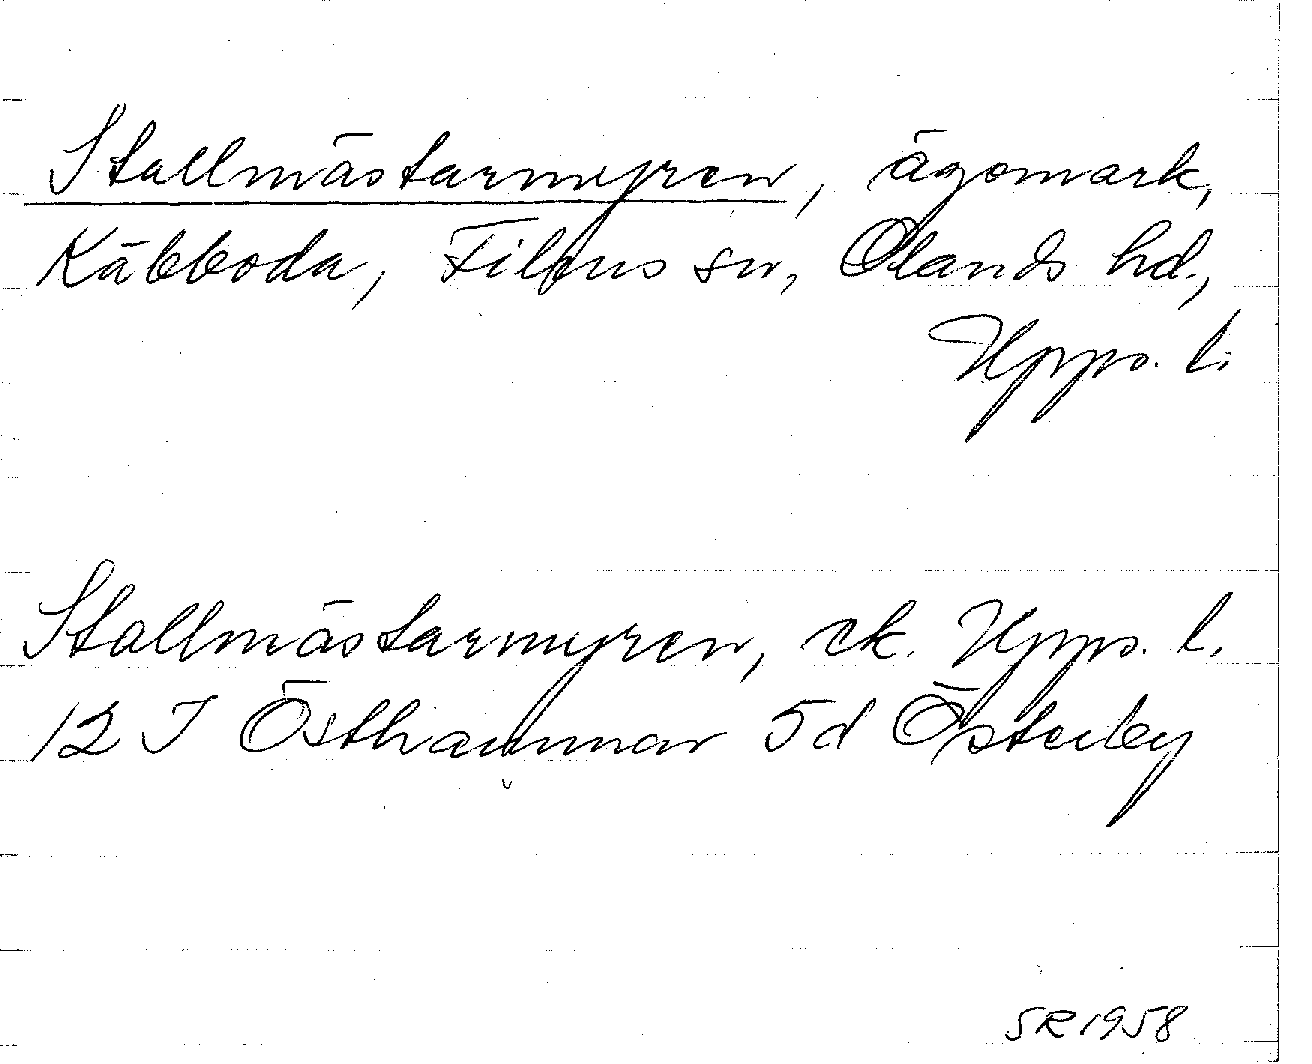 Stallmästarmyren, ägomark,
Käbboda, Films sn, Olands hd.,
Upps. l.
Stallmästarmyren, ek. Upps. l.
12 I Östhammar 5d Österby
SR 1958